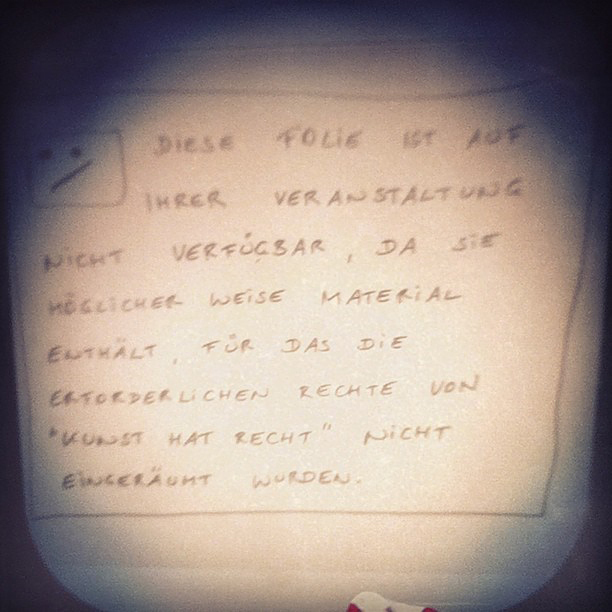 DIESE FOLIE IST AUF
IHRER VERANSTALTUNG
NICHT VERFÜGBAR, DA SIE
MÖGLICHER WEISE MATERIAL
ENTHÄLT, FÜR DAS DIE
ERFORDERLICHEN RECHTE VON
"KUNST HAT RECHT" NICHT
EINGERÄUMT WURDEN.